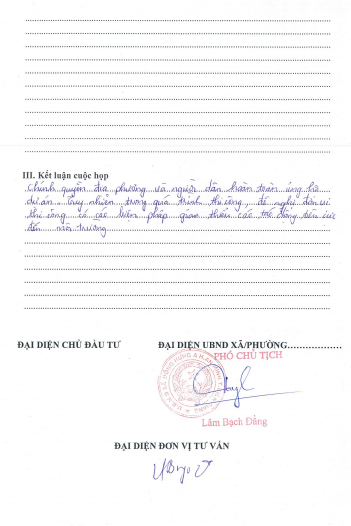 III. Kết luận cuộc họp
Chính quyền địa phương và người dân hoàn toàn ủng hộ
dự án. Tuy nhiên trong quá trình thi công, đề nghị đơn vị
thi công có các biện pháp giảm thiểu các tác động tiêu cực
đến môi trường
ĐẠI DIỆN CHỦ ĐẦU TƯ
ĐẠI DIỆN UBND XÃ/PHƯỜNG..................
PHÓ CHỦ TỊCH
Lâm Bạch Đằng
ĐẠI DIỆN ĐƠN VỊ TƯ VẤN